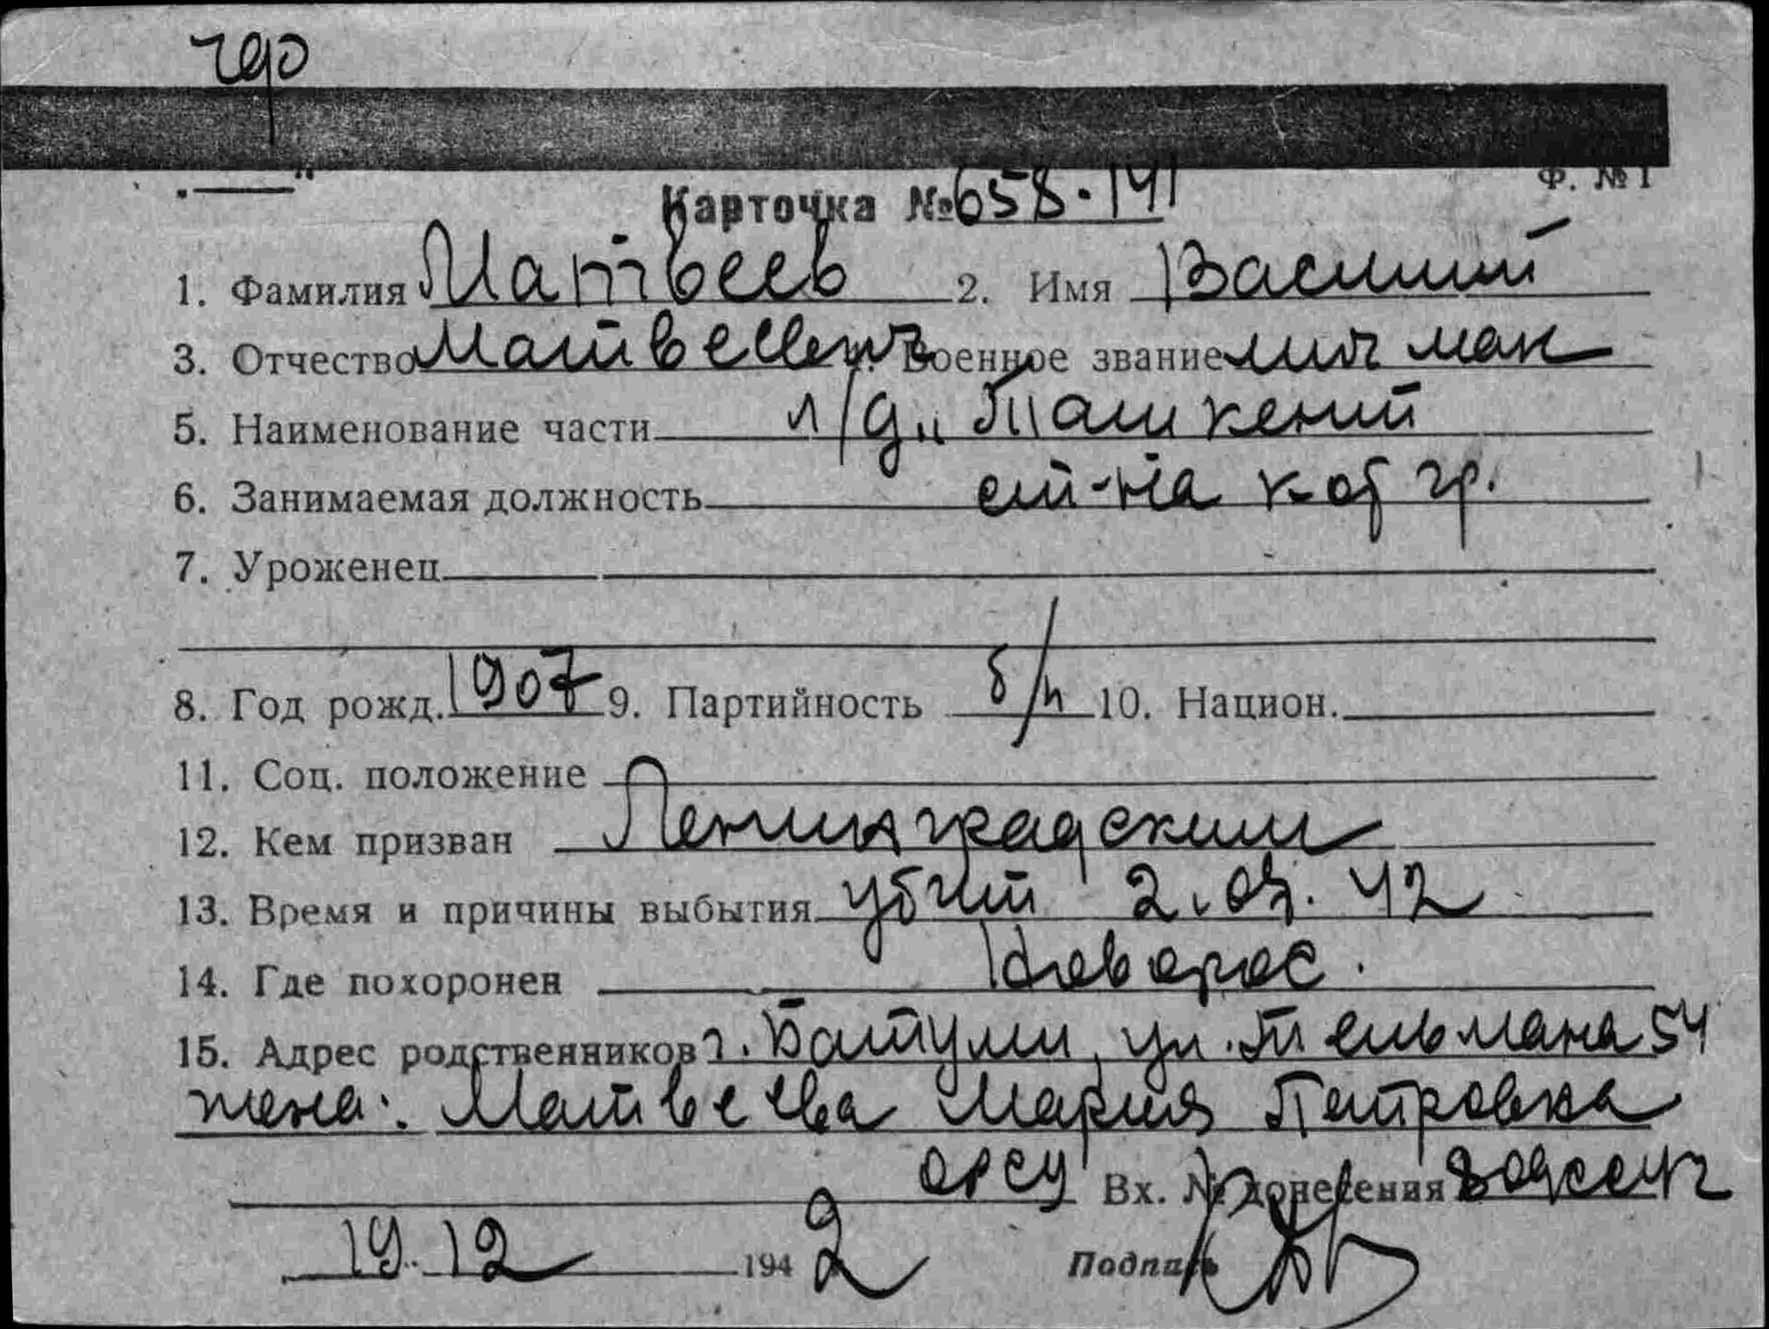 Ф. № 1
Карточка № 658-141
1. Фамилия Матвеев 2. Имя Василий
3. Отчество Матвеевич Военное звание мичман
5. Наименование части л/д "Ташкент
6. Занимаемая должность ст-на к-об гр.
7. Уроженец
8. Год рожд. 1907 9. Партийность б/п 10. Национ.
11. Соц. положение
12. Кем призван Ленинградским
13. Время и причины выбытия убит 2.07.42
14. Где похоронен Новорос.
15. Адрес родственников г. Батуми, ул. Тельмана 54
жена: Матвеева Мария Петровна
Вх. № донесения
19.12 1942 Подпись